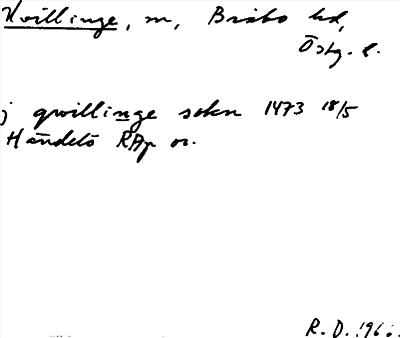 Kvillinge, sn, Bråbo hd,
Östg. l.
j qwillinge sokn 1473 18/5
Händelö RAp or.
R. D. 196